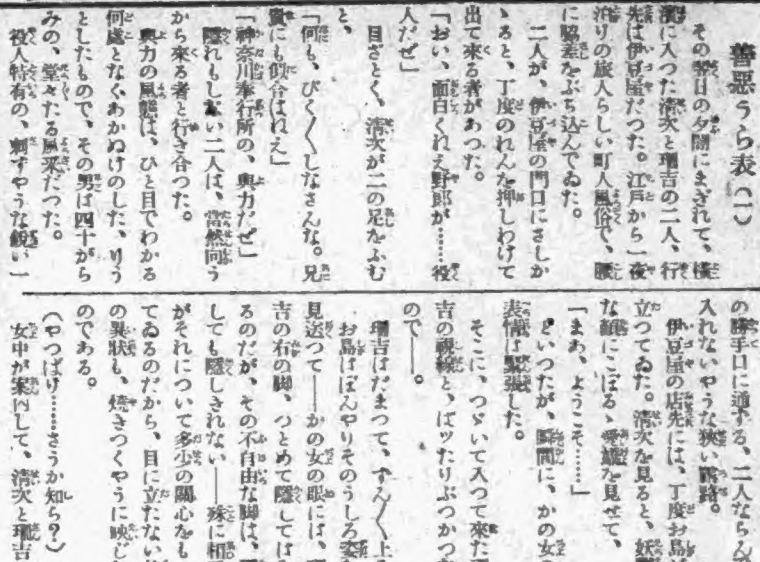 善惡うら表(一)
その翌日の夕闇にまぎれて、横
濱に入つた清次と瑠吉の二人、行
先は伊豆屋だつた。江戸から一夜
泊りの旅人らしい町人風俗で、腰
に脇差をぶち込んでゐた。
二人が、伊豆屋の門口にさしか
ゝると、丁度のれんを押しわけて
出て來る者があつた。
「おい、面白くれえ野郎が……役
人だぜ」
目ざとく、清次が二の足をふむ
と、
「何も、びく〳〵しなさんな。兄
貴にも似合はねえ」
「神奈川奉行所の、與力だぜ」
隱れもしない二人は、當然向う
から來る者と行き合つた。
與力の風態は、ひと目でわかる
何處となくあかぬけのした、りう
としたもので、その男は四十がら
みの、堂々たる風采だつた。
役人特有の、刺すやうな鋭い」
の勝手口に通ずる、二人ならんで
入れないやうな狹い露路。
伊豆屋の店先には、丁度お島が
立つてゐた。清次を見ると、妖艶
な顏にこぼるゝ愛嬌を見せて、
「まあ、ようこそ……」
といつたが、瞬間に、かの女の
表情は緊張した。
そこに、つゞいて入つて來た瑠
吉の視線と、ばツたりぶつかつた
ので――。
瑠吉はだまつて、ずん〳〵上る
お島はぼんやりそのうしろ姿を
見送つて――かの女の眼には、瑠
吉の右の脚、つとめて隱してはゐ
るのだが、その不自由な脚は、
しても隱しきれない――殊に相
がそれについて多少の關心をも
てゐるのだから、目に立たない
の異狀も、燒きつくやうに映じた
のである。
(やつぱり……さうか知ら?)
女中が案内して、清次と瑠吉